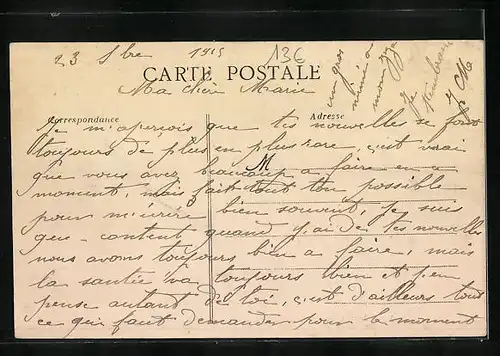 23 Sbre 1915
136
CARTE POSTALE
Ma chère Marie
Correspondance
Adresse
Je m'aperçois que tes nouvelles se font
toujours de plus en plus rare, c'est vrai
que vous avez beaucoup a faire en ce
moment, mais fait tout ton possible
pour m'écrire bien souvent, je suis
que content quand j'ai de tes nouvelles
nous avons toujours bien a faire, mais
la santée va toujours bien et je
pense autant de toi, c'est d'ailleurs tout
ce qui faut demander pour le moment
un gros
mimi a
mon
Je
t'embrasse